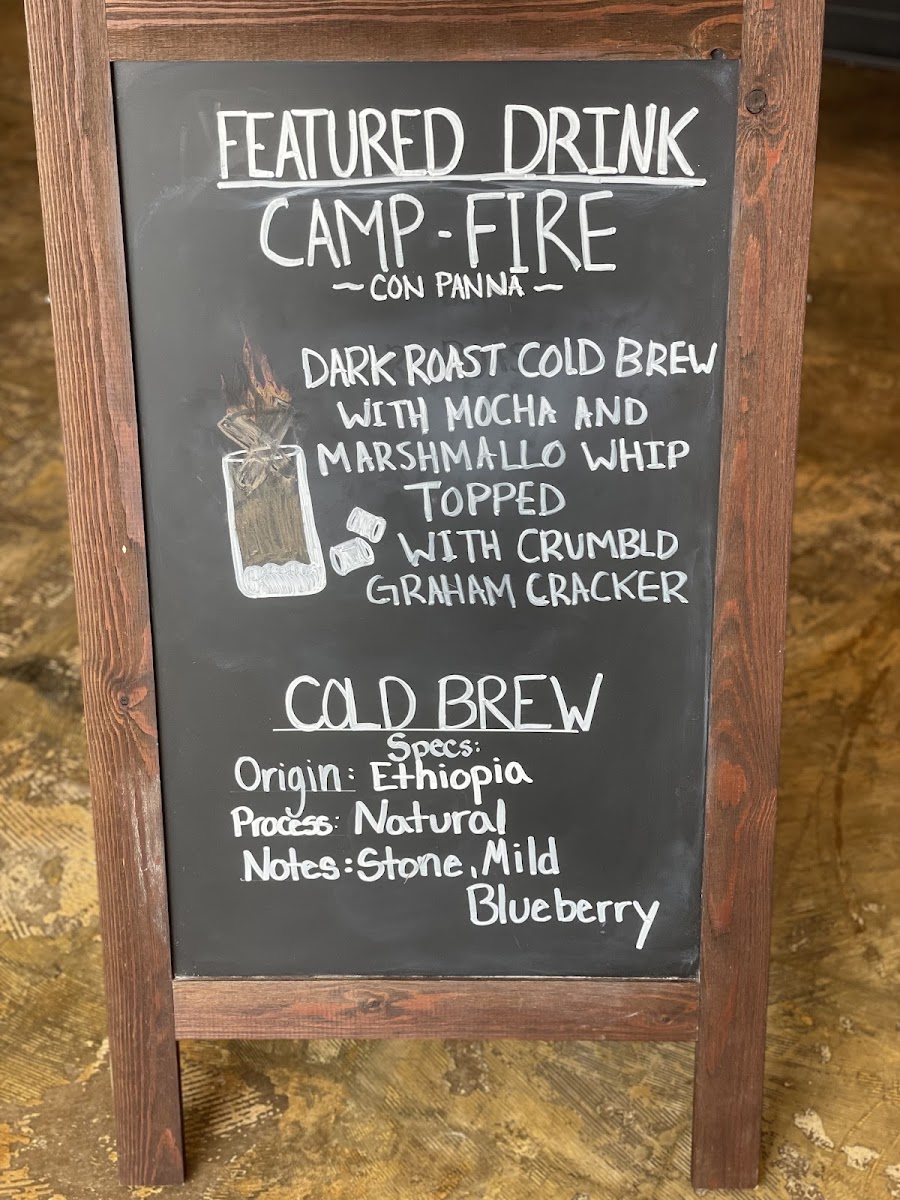 FEATURED DRINK
CAMP-FIRE
~ CON PANNA ~
DARK ROAST COLD BREW
WITH MOCHA AND
MARSHMALLO WHIP
TOPPED
WITH CRUMBLD
GRAHAM CRACKER
COLD BREW
Specs:
Origin: Ethiopia
Process: Natural
Notes: Stone, Mild
Blueberry